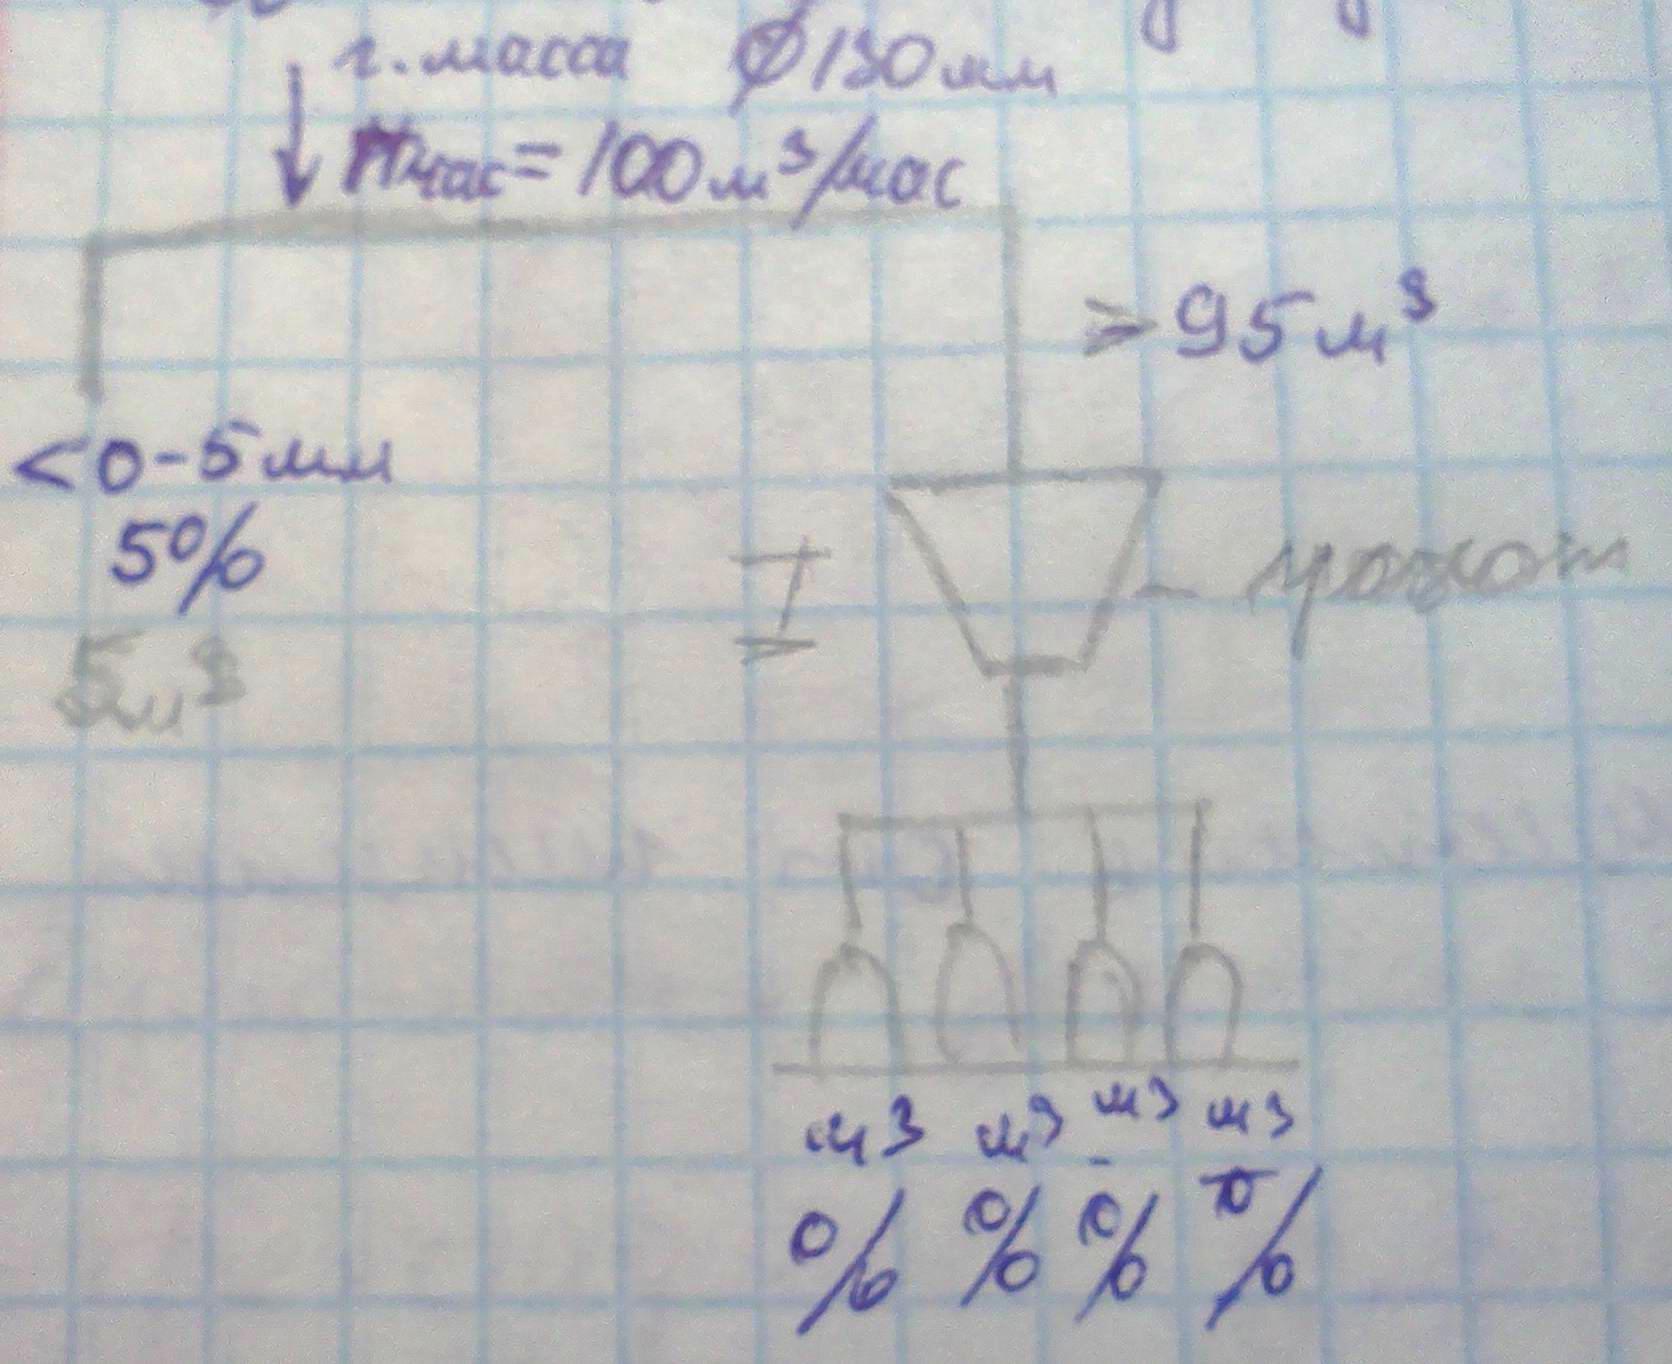 г. масса Ø130мм
Пчас = 100м³/час
> 95м³
<0-5мм
5%
I
5м³
м³ м³ м³ м³
% % % %